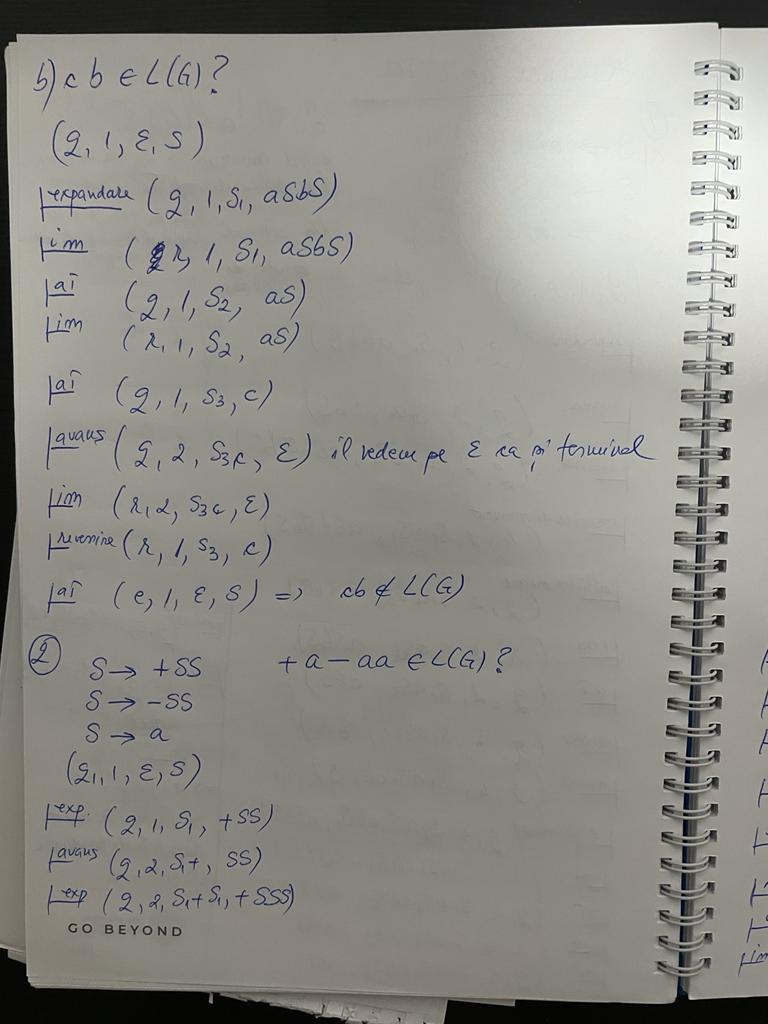 b) cb ∈ L(G)?
(q, 1, ε, S)
⊢expandare (q, 1, S₁, aSbS)
⊢im (r, 1, S₁, aSbS)
⊢aî (q, 1, S₂, aS)
⊢im (r, 1, S₂, aS)
⊢aî (q, 1, S₃, c)
⊢avans (q, 2, S₃c, ε) îl vedem pe ε ca și terminal
⊢im (r, 2, S₃c, ε)
⊢revenire (r, 1, S₃, c)
⊢aî (e, 1, ε, S) => cb ∉ L(G)
② S → +SS +a-aa ∈ L(G)?
S → -SS
S → a
(q, 1, ε, S)
⊢exp. (q, 1, S₁, +SS)
⊢avans (q, 2, S₁+, SS)
⊢exp (q, 2, S₁+S₁, +SSS)
GO BEYOND